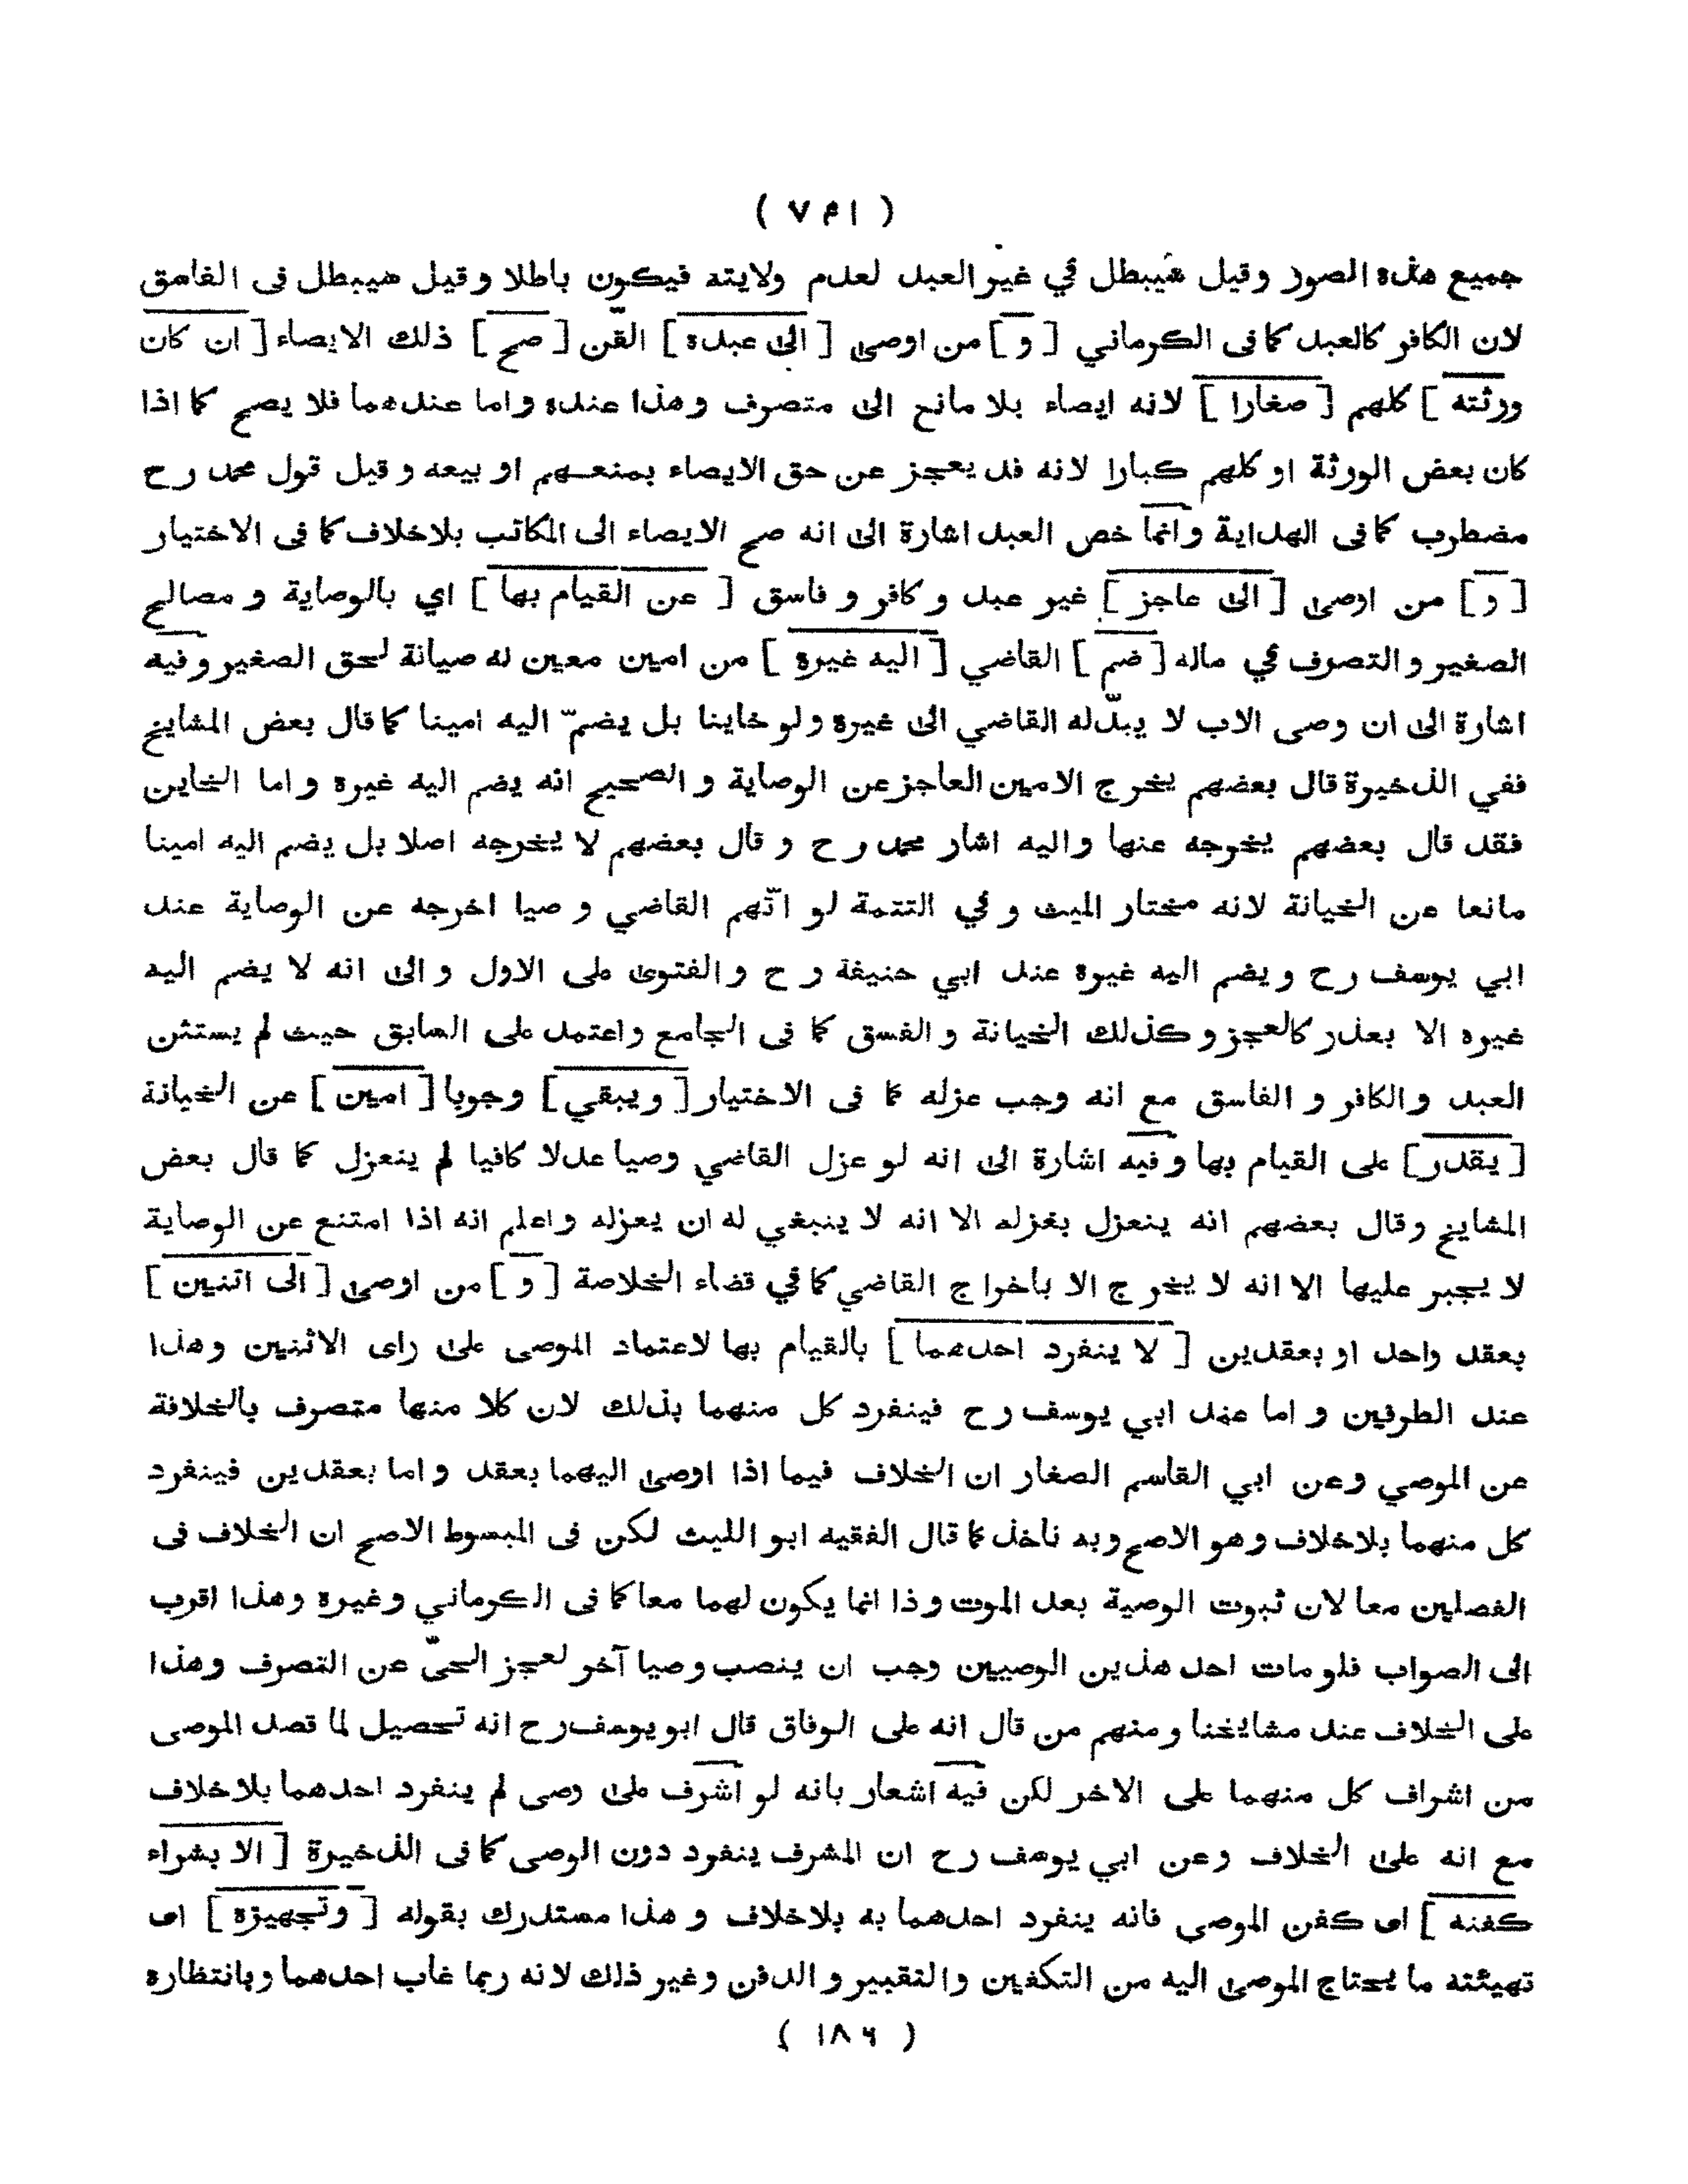 ( ٧٤١ )
جميع هذه الصور وقيل سيبطل في غير العبد لعدم ولايته فيكون باطلا وقيل سيبطل فى الفاسق
لان الكافر كالعبد كما فى الكرماني [ و ] من اوصى [ الى عبده ] القن [ صح ] ذلك الايصاء [ ان كان
ورثته ] كلهم [ صغارا ] لانه ايصاء بلا مانع الى متصرف وهذا عنده واما عندهما فلا يصح كما اذا
كان بعض الورثة او كلهم كبارا لانه قد يعجز عن حق الايصاء بمنعهم او بيعه وقيل قول محمد رح
مضطرب كما فى الهداية وانما خص العبد اشارة الى انه صح الايصاء الى المكاتب بلاخلاف كما فى الاختيار
[ و ] من اوصى [ الى عاجز ] غير عبد وكافر و فاسق [ عن القيام بها ] اي بالوصاية و مصالح
الصغير والتصرف في ماله [ ضم ] القاضي [ اليه غيره ] من امين معين له صيانة لحق الصغير وفيه
اشارة الى ان وصى الاب لا يبدّله القاضي الى غيره ولو خاينا بل يضمّ اليه امينا كما قال بعض المشايخ
ففي الذخيرة قال بعضهم يخرج الامين العاجز عن الوصاية و الصحيح انه يضم اليه غيره واما الخاين
فقد قال بعضهم يخرجه عنها واليه اشار محمد رح و قال بعضهم لا يخرجه اصلا بل يضم اليه امينا
مانعا عن الخيانة لانه مختار الميت و في التتمة لو اتّهم القاضي وصيا اخرجه عن الوصاية عند
ابي يوسف رح ويضم اليه غيره عند ابي حنيفة رح والفتوى على الاول والى انه لا يضم اليه
غيره الا بعذر كالعجز وكذلك الخيانة و الفسق كما فى الجامع واعتمد على السابق حيث لم يستثن
العبد والكافر و الفاسق مع انه وجب عزله كما فى الاختيار [ ويبقي ] وجوبا [ امين ] عن الخيانة
[ يقدر ] على القيام بها وفيه اشارة الى انه لو عزل القاضي وصيا عدلا كافيا لم ينعزل كما قال بعض
المشايخ وقال بعضهم انه ينعزل بغزله الا انه لا ينبغي له ان يعزله واعلم انه اذا امتنع عن الوصاية
لا يجبر عليها الا انه لا يخرج الا باخراج القاضي كما في قضاء الخلاصة [ و ] من اوصى [ الى اثنين ]
بعقد واحد او بعقدين [ لا ينفرد احدهما ] بالقيام بها لاعتماد الموصى على راى الاثنين وهذا
عند الطرفين و اما عند ابي يوسف رح فينفرد كل منهما بذلك لان كلا منها متصرف بالخلافة
عن الموصي وعن ابي القاسم الصفار ان الخلاف فيما اذا اوصى اليهما بعقد واما بعقدين فينفرد
كل منهما بلاخلاف وهو الاصح وبه ناخذ كما قال الفقيه ابو الليث لكن فى المبسوط الاصح ان الخلاف فى
الفصلين معا لان ثبوت الوصية بعد الموت وذا انما يكون لهما معا كما فى الكرماني وغيره وهذا اقرب
الى الصواب فلو مات احد هذين الوصيين وجب ان ينصب وصيا آخر لعجز الحىّ عن التصرف وهذا
على الخلاف عند مشايخنا ومنهم من قال انه على الوفاق قال ابو يوسف رح انه تحصيل لما قصد الموصى
من اشراف كل منهما على الاخر لكن فيه اشعار بانه لو اشرف على وصى لم ينفرد احدهما بلاخلاف
مع انه على الخلاف وعن ابي يوسف رح ان المشرف ينفرد دون الوصى كما فى الذخيرة [ الا بشراء
كفنه ] اى كفن الموصى فانه ينفرد احدهما به بلاخلاف وهذا مستدرك بقوله [ وتجهيزه ] اى
تهيئته ما يحتاج الموصى اليه من التكفين والتقبير والدفن وغير ذلك لانه ربما غاب احدهما وبانتظاره
( ١٨٦ )